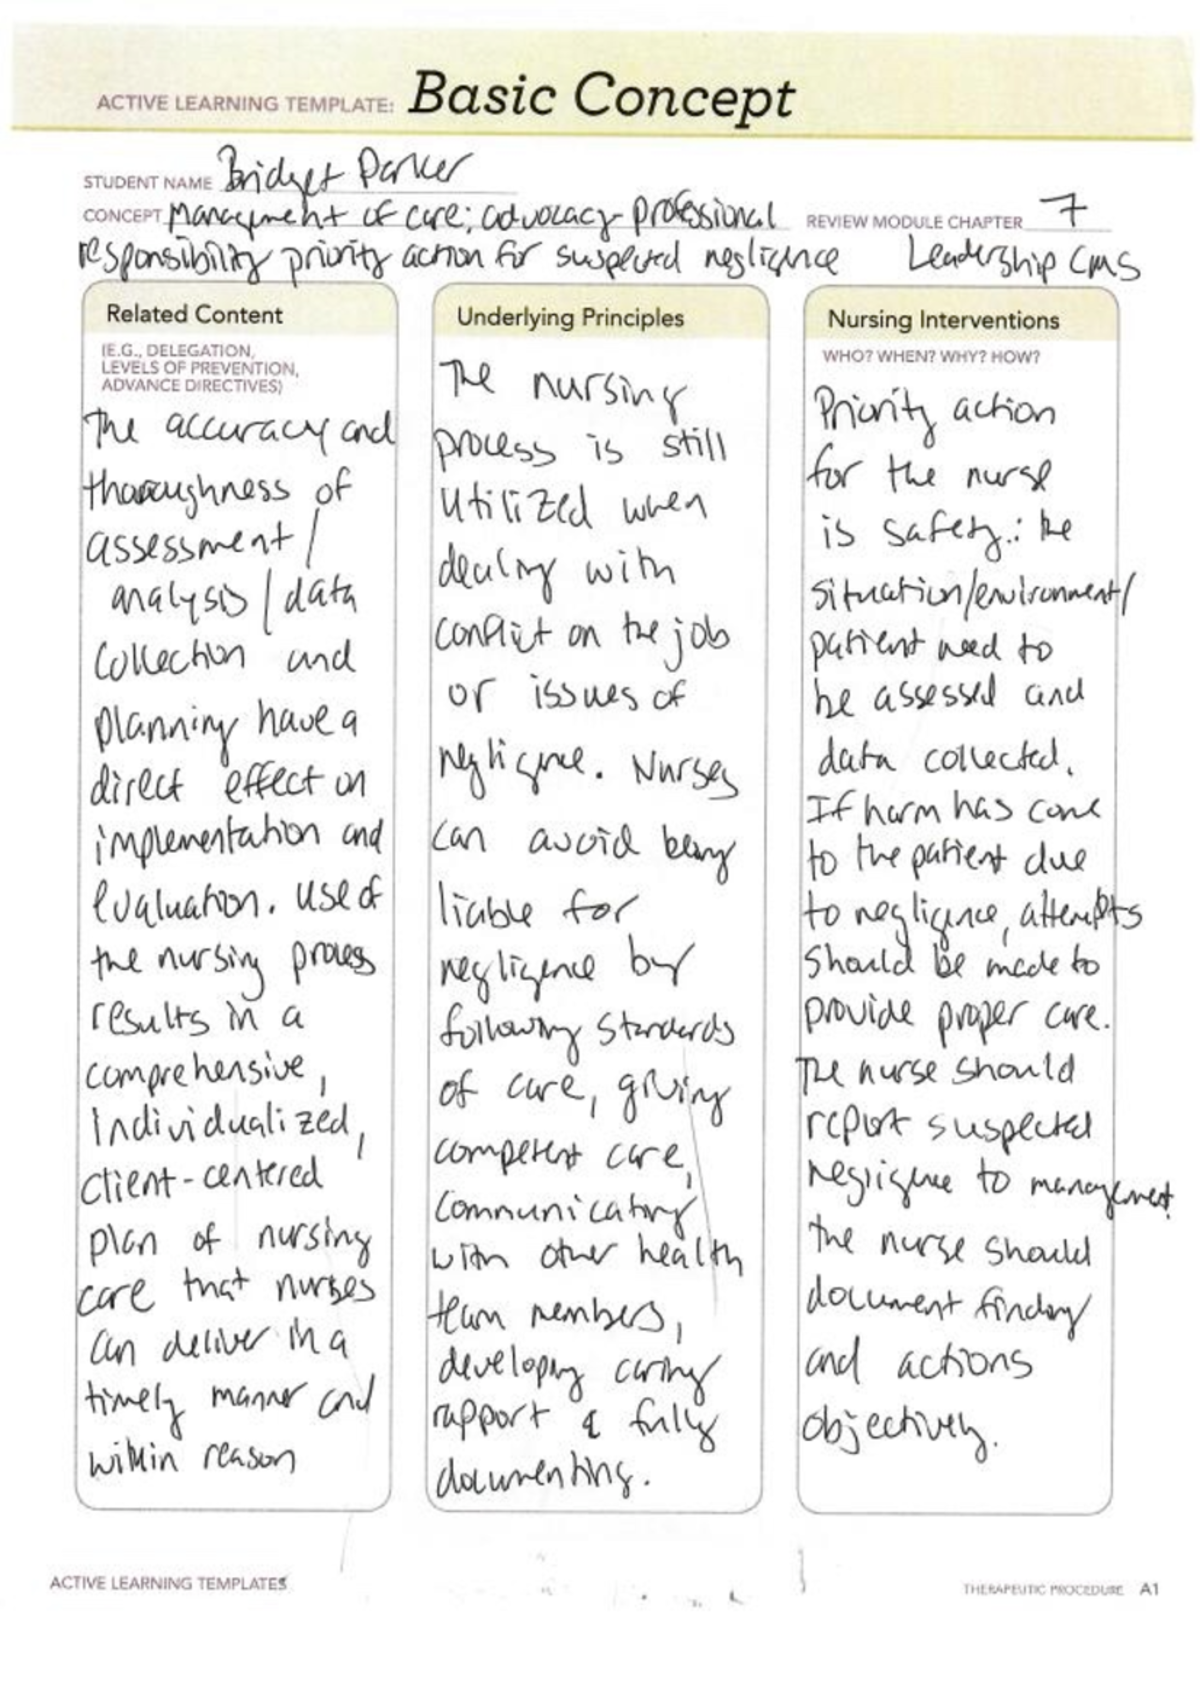 ACTIVE LEARNING TEMPLATE: Basic Concept
STUDENT NAME Bridget Parker
CONCEPT Management of care: advocacy-professional REVIEW MODULE CHAPTER 7
responsibility priority action for suspected negligence Leadership CMS
Related Content
(E.G., DELEGATION,
LEVELS OF PREVENTION,
ADVANCE DIRECTIVES)
The accuracy and
thoroughness of
assessment/
analysis/data
Collection and
planning have a
direct effect on
implementation and
evaluation. Use of
the nursing process
results in a
comprehensive,
individualized,
client-centered
plan of nursing
care that nurses
can deliver in a
timely manner and
within reason
Underlying Principles
The nursing
process is still
utilized when
dealing with
conflict on the job
or issues of
negligence. Nurses
can avoid being
liable for
negligence by
following standards
of care, giving
competent care,
communicating
with other health
team members,
developing caring
rapport & fully
documenting.
Nursing Interventions
WHO? WHEN? WHY? HOW?
Priority action
for the nurse
is safety.: the
situation/environment/
patient need to
be assessed and
data collected.
If harm has come
to the patient due
to negligence, attempts
should be made to
provide proper care.
The nurse should
report suspected
negligence to management.
the nurse should
document finding
and actions
objectively.
ACTIVE LEARNING TEMPLATES
THERAPEUTIC PROCEDURE A1